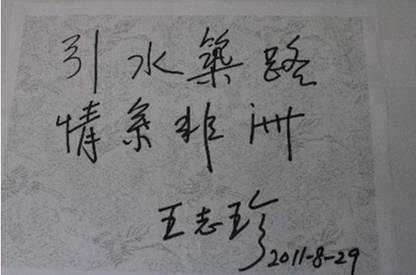 引水築路
情系非洲
王志珍
2011-8-29